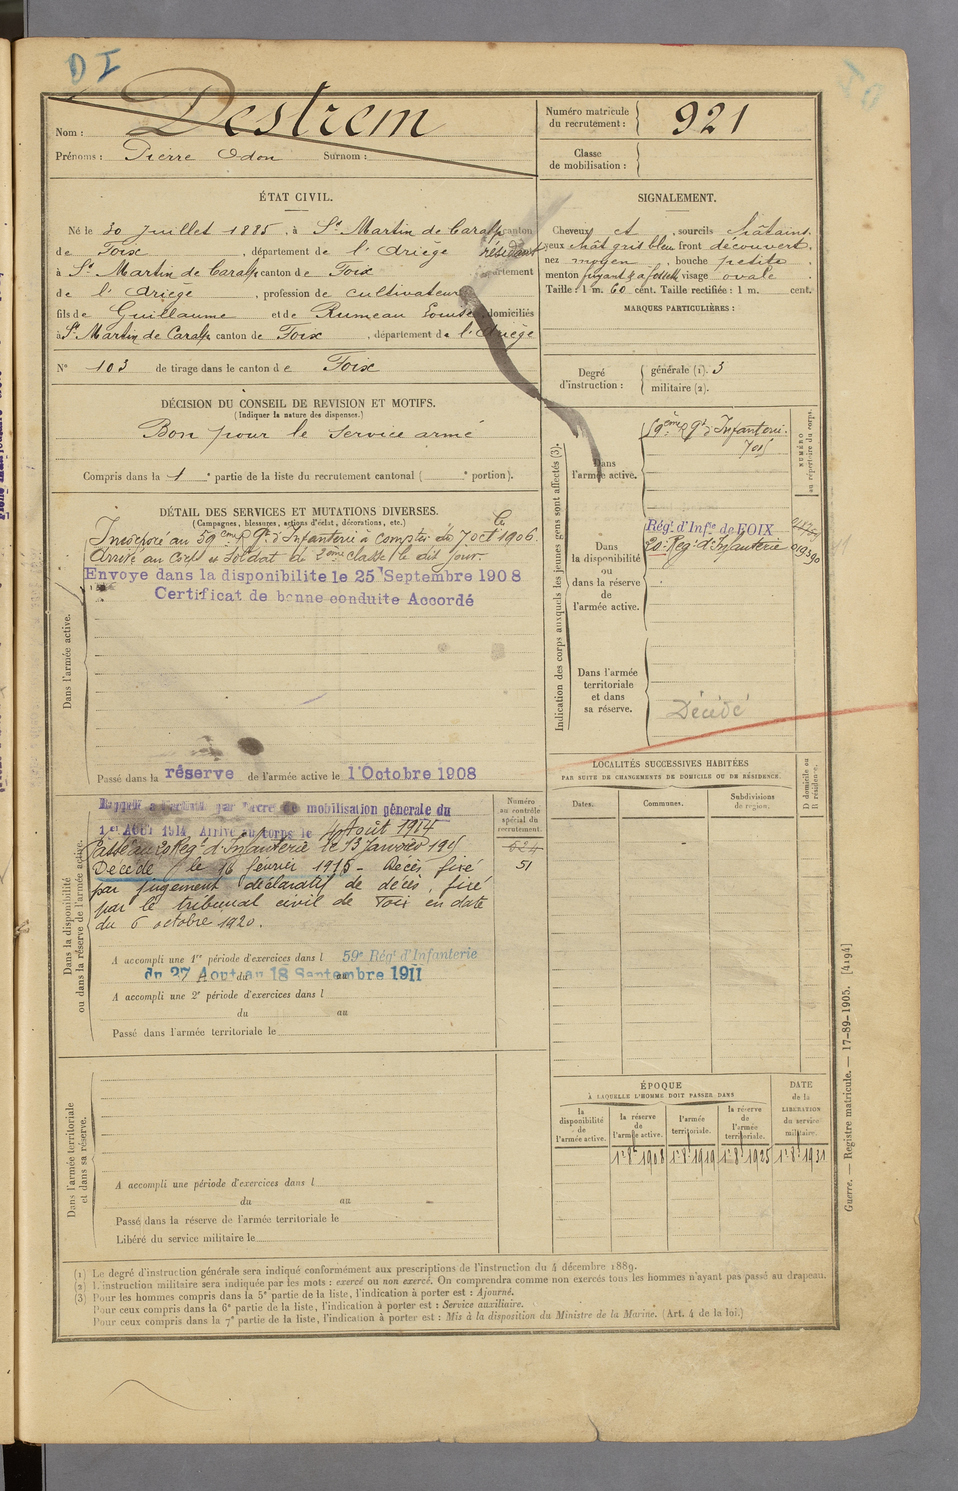 DI
Nom : Destrem
Prénoms : Pierre Odon Surnom :
Numéro matricule du recrutement : 921
Classe de mobilisation :
ÉTAT CIVIL.
Né le 30 Juillet 1885, à St Martin de Caralp canton
de Foix, département de l'Ariège résidant
à St Martin de Caralp canton de Foix département
de l'Ariège, profession de cultivateur
fils de Guillaume et de Rumeau Louise, domiciliés
à St Martin de Caralp canton de Foix, département de l'Ariège
N° 103 de tirage dans le canton de Foix
SIGNALEMENT.
Cheveux et , sourcils châtains.
yeux chât gris bleu front découvert,
nez moyen, bouche petite,
menton fuyant à fossette, visage ovale.
Taille : 1 m. 60 cent. Taille rectifiée : 1 m. cent.
MARQUES PARTICULIÈRES :
Degré d'instruction :
générale (1). 3
militaire (2).
DÉCISION DU CONSEIL DE REVISION ET MOTIFS.
(Indiquer la nature des dispenses.)
Bon pour le service armé
Compris dans la 1e partie de la liste du recrutement cantonal ( e portion).
DÉTAIL DES SERVICES ET MUTATIONS DIVERSES.
(Campagnes, blessures, actions d'éclat, décorations, etc.)
Dans l'armée active.
Incorporé au 59ème Rgt d'Infanterie à compter du 7 octbre 1906.
Arrivé au corps et soldat de 2ème classe le dit jour.
Envoye dans la disponibilite le 25 Septembre 1908
Certificat de bonne conduite Accordé
Passé dans la réserve de l'armée active le 1 Octobre 1908
Indication des corps auxquels les jeunes gens sont affectés (3).
NUMÉRO au répertoire du corps.
Dans l'armée active.
59ème Rgt d'Infanterie.
Dans la disponibilité ou dans la réserve de l'armée active.
Régt d'Infie de FOIX
20e Regt d'Infanterie 019390
Dans l'armée territoriale et dans sa réserve.
Décédé
Dans la disponibilité ou dans la réserve de l'armée active.
mobilisation génerale du
1er Août 1914. Arrivé au corps le 4 Août 1914
Passé au 20 Regt d'Infanterie le 13 janvier 1915
Décédé le 16 février 1915 - Décès fixé
par jugement déclaratif de décès, fixé
par le tribunal civil de Foix en date
du 6 octobre 1920.
Numéro au contrôle spécial du recrutement.
624
51
A accompli une 1re période d'exercices dans l 59e Régt d'Infanterie
du 27 Aout au 18 Septembre 1911
A accompli une 2e période d'exercices dans l
du au
Passé dans l'armée territoriale le
LOCALITÉS SUCCESSIVES HABITÉES
PAR SUITE DE CHANGEMENTS DE DOMICILE OU DE RÉSIDENCE.
D domicile ou R résidence.
Dates.
Communes.
Subdivisions de region.
Dans l'armée territoriale et dans sa réserve.
A accompli une période d'exercices dans l
du au
Passé dans la réserve de l'armée territoriale le
Libéré du service militaire le
ÉPOQUE
À LAQUELLE L'HOMME DOIT PASSER DANS
la disponibilité de l'armée active.
la réserve de l'armée active.
l'armée territoriale.
la réserve de l'armée territoriale.
DATE de la LIBÉRATION du service militaire.
1r 8e 1908
1r 8e 1919
1r 8e 1925
1r 8e 1931
(1) Le degré d'instruction générale sera indiqué conformément aux prescriptions de l'instruction du 4 décembre 1889.
(2) L'instruction militaire sera indiquée par les mots : exercé ou non exercé. On comprendra comme non exercés tous les hommes n'ayant pas passé au drapeau.
(3) Pour les hommes compris dans la 5e partie de la liste, l'indication à porter est : Ajourné.
Pour ceux compris dans la 6e partie de la liste, l'indication à porter est : Service auxiliaire.
Pour ceux compris dans la 7e partie de la liste, l'indication à porter est : Mis à la disposition du Ministre de la Marine. (Art. 4 de la loi.)
Guerre. — Registre matricule. — 17-89-1905. [4194]